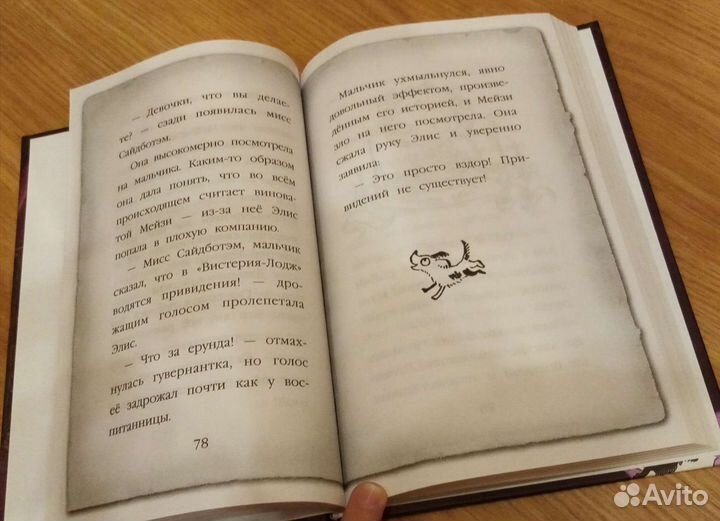 — Девочки, что вы делае-
те? — сзади появилась мисс
Сайдботэм.
Она высокомерно посмотрела
на мальчика. Каким-то образом
она дала понять, что во всём
происходящем считает винова-
той Мейзи — из-за неё Элис
попала в плохую компанию.
— Мисс Сайдботэм, мальчик
сказал, что в «Вистерия-Лодж»
водятся привидения! — дро-
жащим голосом пролепетала
Элис.
— Что за ерунда! — отмах-
нулась гувернантка, но голос
её задрожал почти как у вос-
питанницы.
78
Мальчик ухмыльнулся, явно
довольный эффектом, произве-
дённым его историей, и Мейзи
зло на него посмотрела. Она
сжала руку Элис и уверенно
заявила:
— Это просто вздор! При-
видений не существует!
Avito